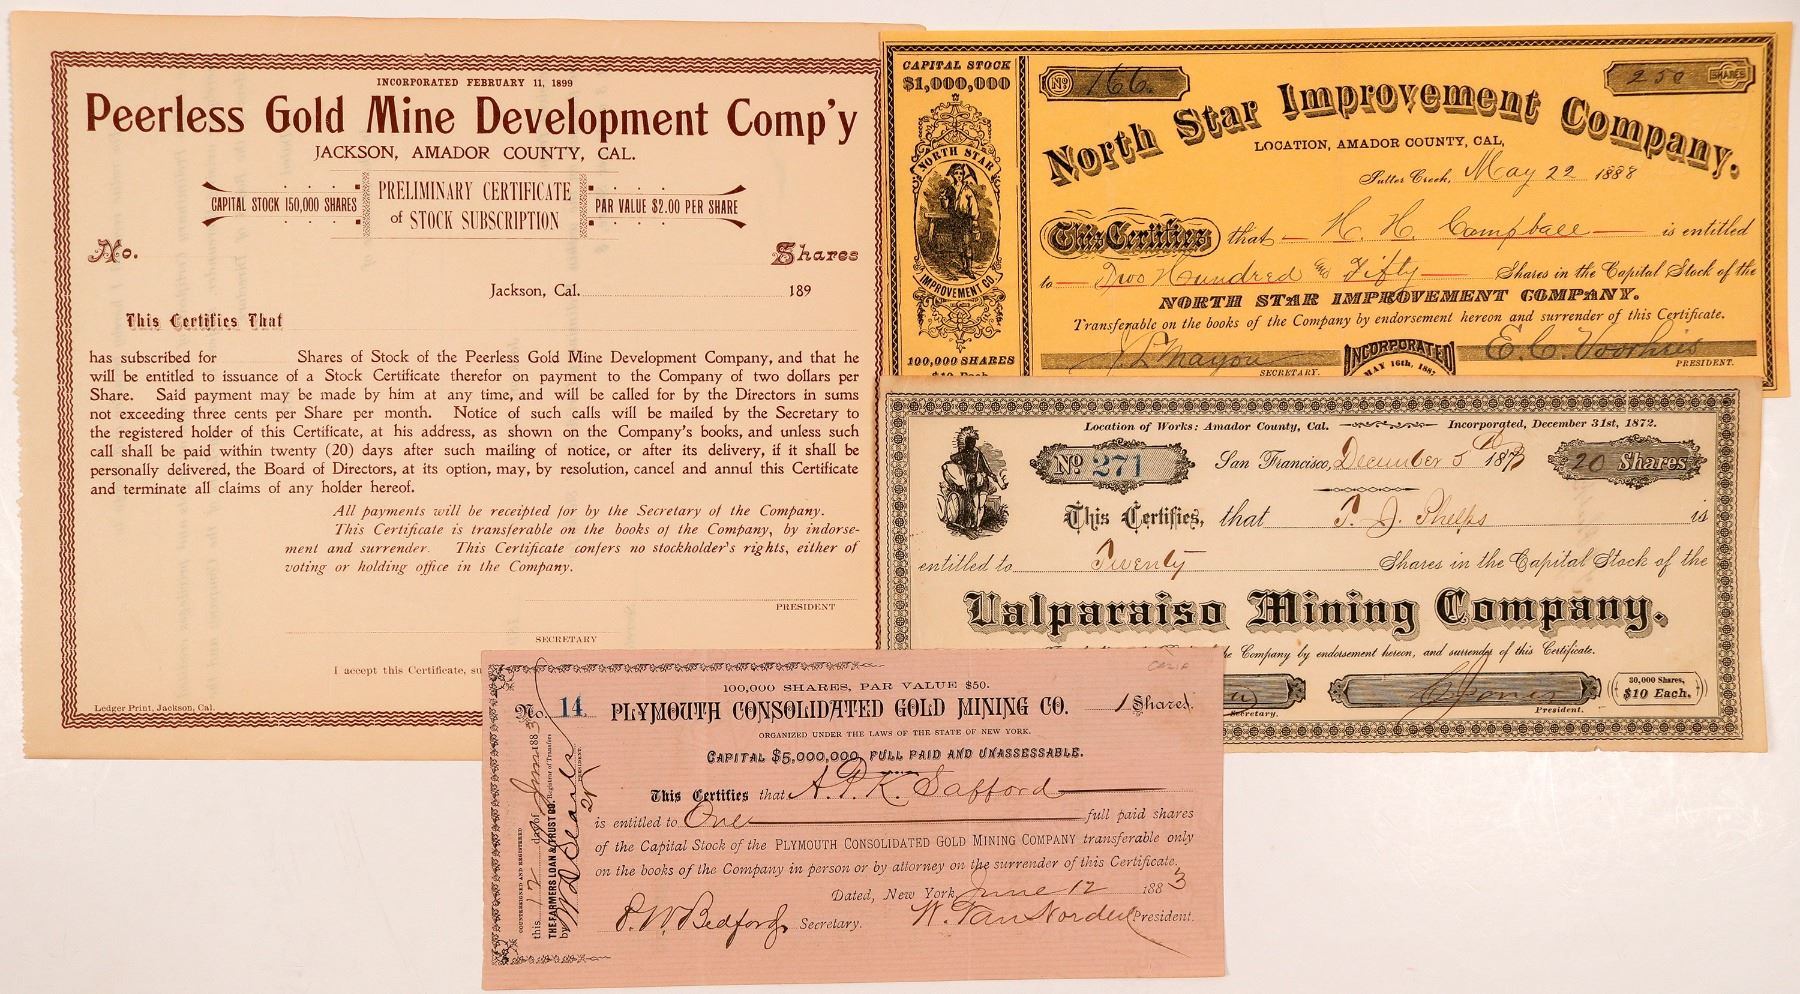 INCORPORATED FEBRUARY 11, 1899
Peerless Gold Mine Development Comp'y
JACKSON, AMADOR COUNTY, CAL.
CAPITAL STOCK 150,000 SHARES
PRELIMINARY CERTIFICATE
of STOCK SUBSCRIPTION
PAR VALUE $2.00 PER SHARE
No.
Shares
Jackson, Cal. 189
This Certifies That
has subscribed for Shares of Stock of the Peerless Gold Mine Development Company, and that he
will be entitled to issuance of a Stock Certificate therefor on payment to the Company of two dollars per
Share. Said payment may be made by him at any time, and will be called for by the Directors in sums
not exceeding three cents per Share per month. Notice of such calls will be mailed by the Secretary to
the registered holder of this Certificate, at his address, as shown on the Company's books, and unless such
call shall be paid within twenty (20) days after such mailing of notice, or after its delivery, if it shall be
personally delivered, the Board of Directors, at its option, may, by resolution, cancel and annul this Certificate
and terminate all claims of any holder hereof.
All payments will be receipted for by the Secretary of the Company.
This Certificate is transferable on the books of the Company, by indorse-
ment and surrender. This Certificate confers no stockholder's rights, either of
voting or holding office in the Company.
PRESIDENT
SECRETARY
I accept this Certificate, su
Ledger Print, Jackson, Cal.
CAPITAL STOCK
$1,000,000
NORTH STAR
IMPROVEMENT CO.
100,000 SHARES
$10 Each
No 166.
250 SHARES
North Star Improvement Company.
LOCATION, AMADOR COUNTY, CAL,
Sutter Creek, May 22 1888
This Certifies that H. H. Campbell is entitled
to Two Hundred and Fifty Shares in the Capital Stock of the
NORTH STAR IMPROVEMENT COMPANY.
Transferable on the books of the Company by endorsement hereon and surrender of this Certificate.
Mayon
SECRETARY.
INCORPORATED
MAY 16th, 1887
E. C. Voorhies
PRESIDENT.
Location of Works: Amador County, Cal.
Incorporated, December 31st, 1872.
No 271
San Francisco, December 5 187
20 Shares
This Certifies, that T. J. Phelps is
entitled to Twenty Shares in the Capital Stock of the
Valparaiso Mining Company.
the Company by endorsement hereon, and surrender of this Certificate.
Secretary.
President.
30,000 Shares,
$10 Each.
100,000 SHARES, PAR VALUE $50.
No. 14 PLYMOUTH CONSOLIDATED GOLD MINING CO. 1 Shares.
ORGANIZED UNDER THE LAWS OF THE STATE OF NEW YORK.
CAPITAL $5,000,000, FULL PAID AND UNASSESSABLE.
This Certifies that A. P. K. Safford
is entitled to One full paid shares
of the Capital Stock of the PLYMOUTH CONSOLIDATED GOLD MINING COMPANY transferable only
on the books of the Company in person or by attorney on the surrender of this Certificate.
Dated, New York, June 12 1883
P. W. Bedford, Secretary. W. Van Norden President.
COUNTERSIGNED AND REGISTERED
this 12 day of June 1883
THE FARMERS LOAN & TRUST CO. Registrar of Transfers
by
PRESIDENT.